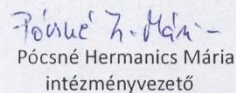 Pócsné H. Mári
Pócsné Hermanics Mária
intézményvezető